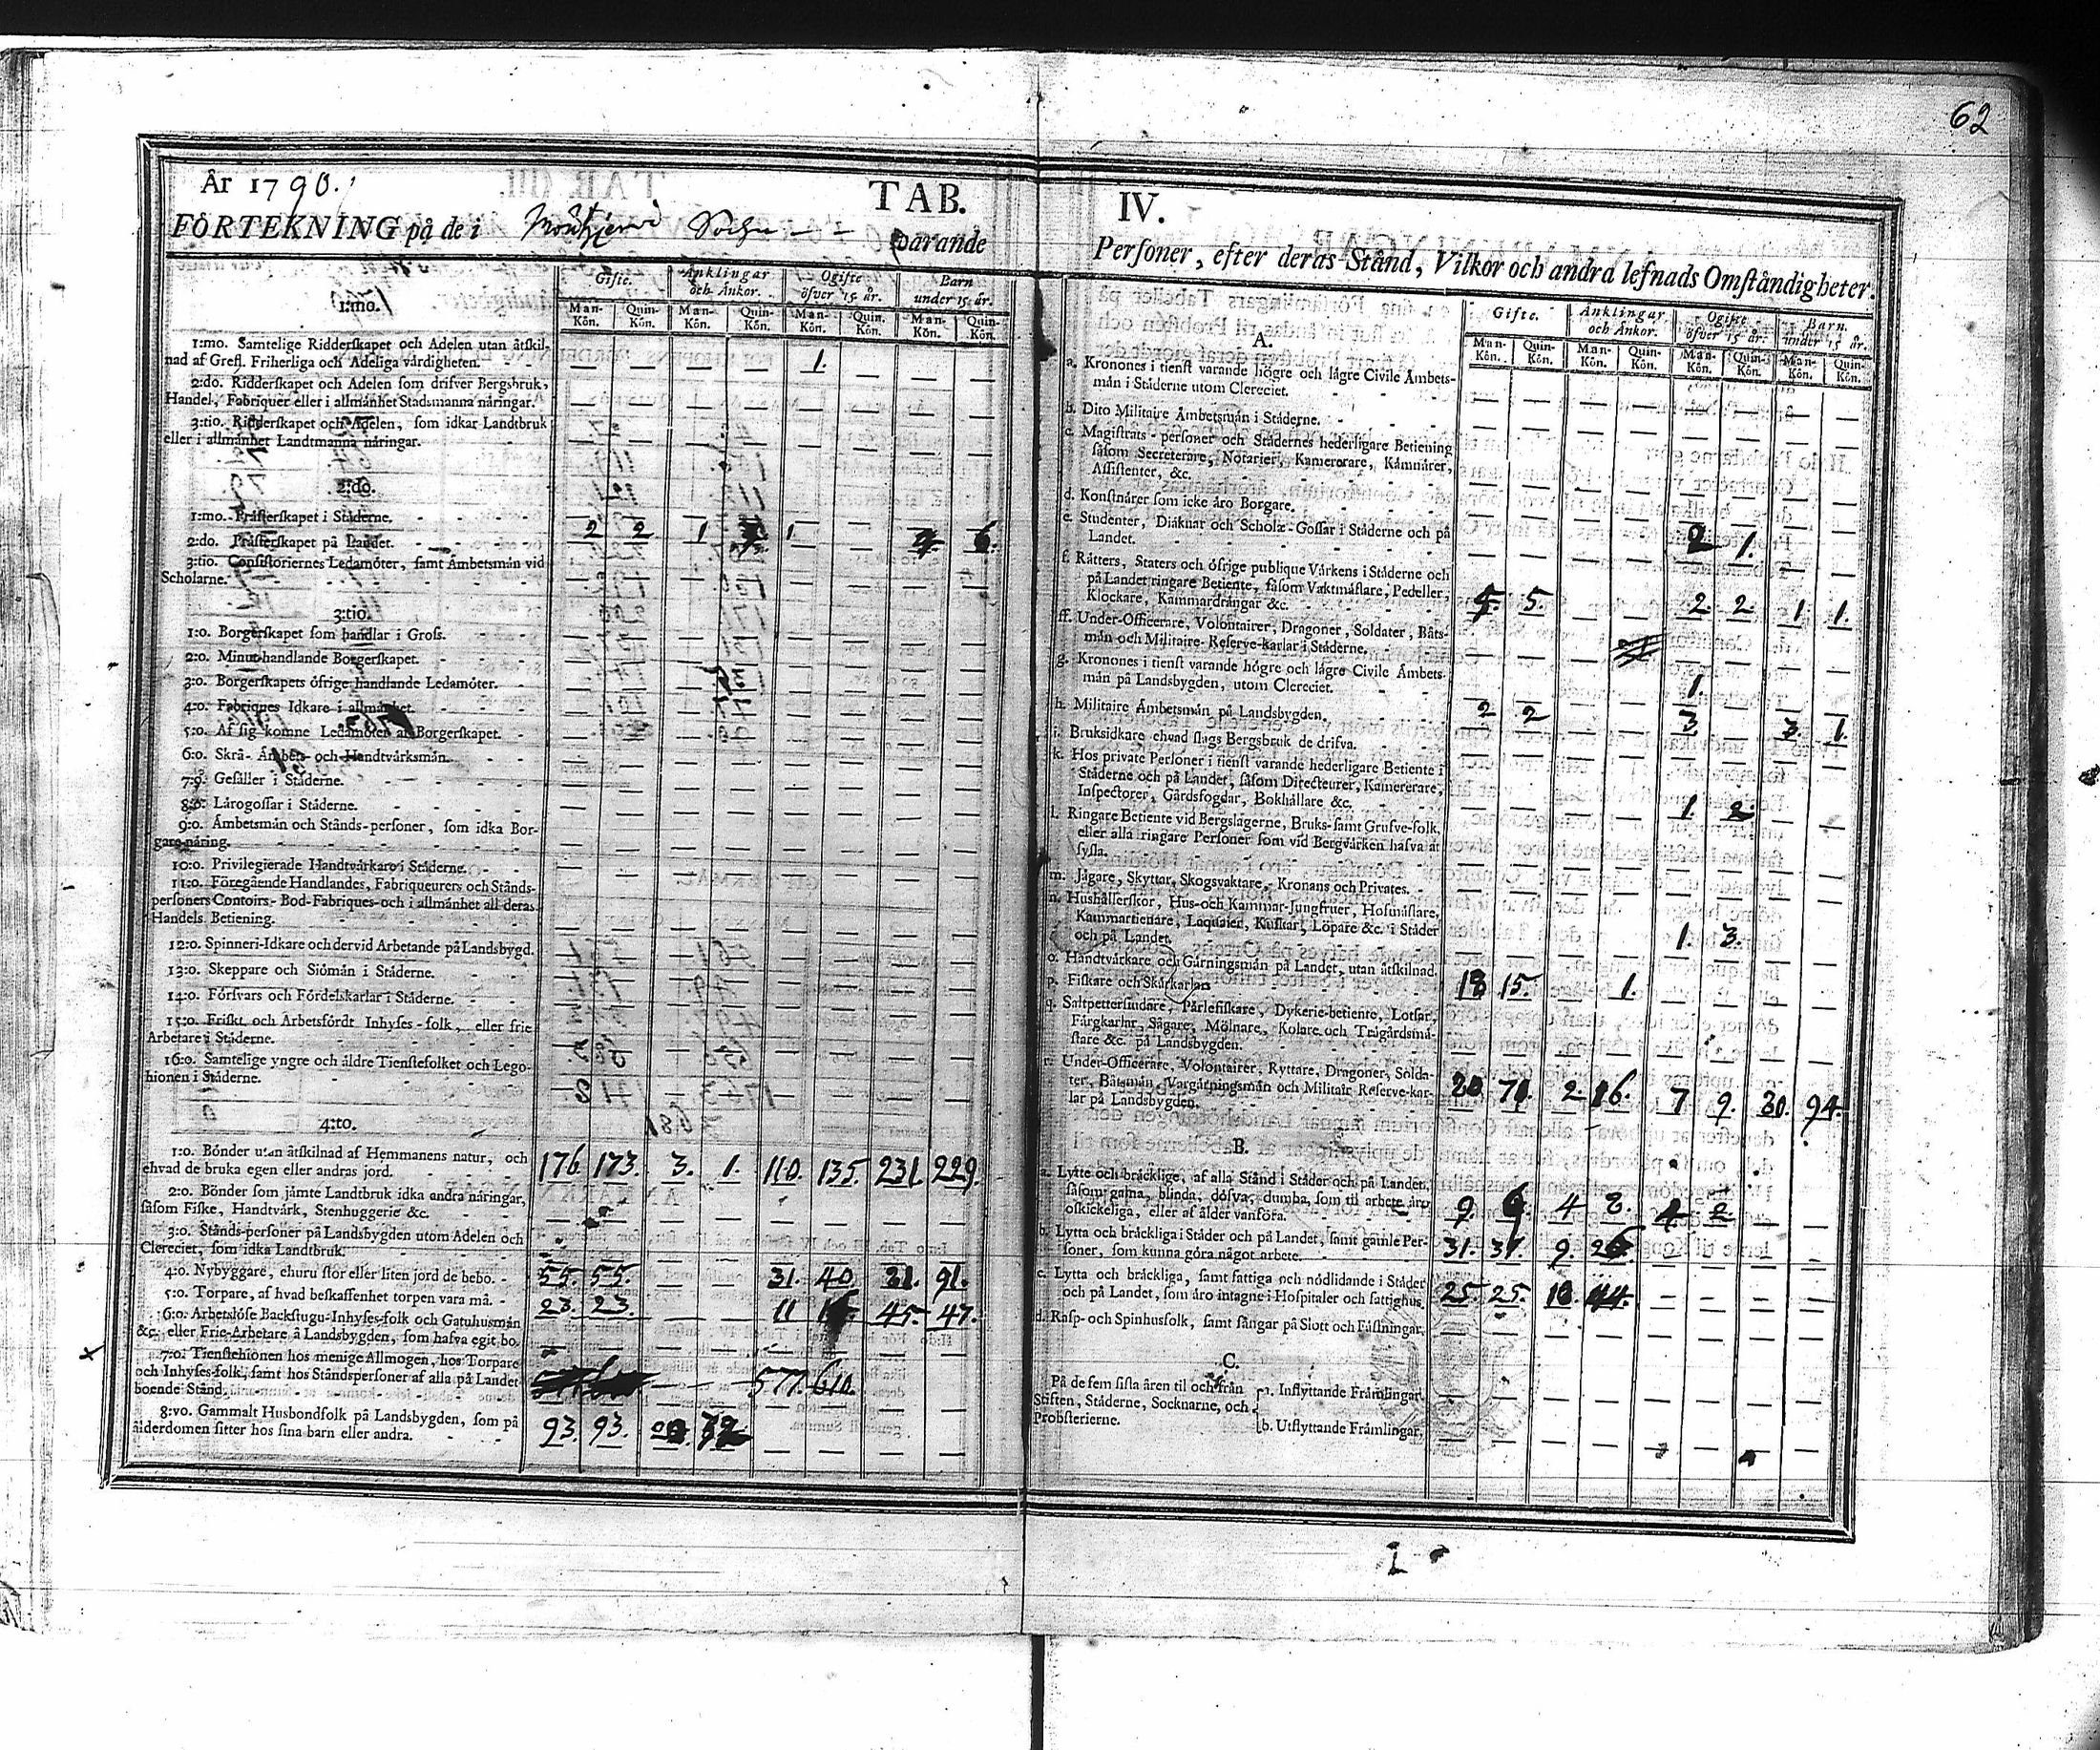 62
År 1790.
TAB.
FÖRTEKNING på de i Sochn varande
Gifte.
Änklingar och Änkor.
Ogifte öfver 15 år.
Barn under 15 år.
Man-Kön. Quin-Kön. Man-Kön. Quin-Kön. Man-Kön. Quin-Kön. Man-Kön. Quin-Kön.
1:mo.
1:mo. Samtelige Ridderskapet och Adelen utan åtskil-
nad af Grefl. Friherliga och Adeliga värdigheten. — — — — 1. — — —
2:do. Ridderskapet och Adelen som drifver Bergsbruk,
Handel, Fabriquer eller i allmänhet Stadsmanna näringar. — — — — — — — —
3:tio. Ridderskapet och Adelen, som idkar Landtbruk
eller i allmänhet Landtmanna näringar. — — — — — — — —
2:do.
1:mo. Prästerskapet i Städerne.
2:do. Prästerskapet på Landet. 2 2 1 1 — — 6.
3:tio. Consistoriernes Ledamöter, samt Ämbetsmän vid
Scholarne.
3:tio.
1:o. Borgerskapet som handlar i Gross.
2:o. Minut-handlande Borgerskapet.
3:o. Borgerskapets öfrige handlande Ledamöter.
4:o. Fabriques Idkare i allmänhet.
5:o. Af sig komne Ledamöter af Borgerskapet.
6:o. Skrå- Ämbets- och Handtvärksmän.
7:o. Gesäller i Städerne.
8:o. Lärogossar i Städerne.
9:o. Ämbetsmän och Stånds-personer, som idka Bor-
gare-näring.
10:o. Privilegierade Handtvärkare i Städerne.
11:o. Föregående Handlandes, Fabriqueurers och Stånds-
personers Contoirs- Bod-Fabriques-och i allmänhet all deras
Handels Betiening.
12:o. Spinneri-Idkare och dervid Arbetande på Landsbygd.
13:o. Skeppare och Siömän i Städerne.
14:o. Försvars och Fördelskarlar i Städerne.
15:o. Friskt och Arbetsfördt Inhyses-folk, eller frie
Arbetare i Städerne.
16:o. Samtelige yngre och äldre Tienstefolket och Lego-
hionen i Städerne.
4:to.
1:o. Bönder utan åtskilnad af Hemmanens natur, och
ehvad de bruka egen eller andras jord. 176. 173. 3. 1. 110. 135. 231. 229.
2:o. Bönder som jämte Landtbruk idka andra näringar,
såsom Fiske, Handtvärk, Stenhuggerie &c. — — — — — — — —
3:o. Stånds-personer på Landsbygden utom Adelen och
Clereciet, som idka Landtbruk.
4:o. Nybyggare, ehuru stor eller liten jord de bebo. 55. 55. — — 31. 40 91.
5:o. Torpare, af hvad beskaffenhet torpen vara må. 23. 23. — — 11 45. 47.
6:o. Arbetslöse Backstugu-Inhyses-folk och Gatuhusmän
&c. eller Frie-Arbetare å Landsbygden, som hafva egit bo.
7:o. Tienstehionen hos menige Allmogen, hos Torpare
och Inhyses-folk, samt hos Ståndspersoner af alla på Landet
boende Stånd. — — 577. 610.
8:vo. Gammalt Husbondfolk på Landsbygden, som på
ålderdomen sitter hos sina barn eller andra. 93. 93. — — — —
IV.
Personer, efter deras Stånd, Vilkor och andra lefnads Omständigheter.
Gifte.
Änklingar och Änkor.
Ogifte öfver 15 år.
Barn. under 15 år.
Man-Kön. Quin-Kön. Man-Kön. Quin-Kön. Man-Kön. Quin-Kön. Man-Kön. Quin-Kön.
A.
a. Kronones i tienst varande högre och lägre Civile Ämbets-
män i Städerne utom Clereciet.
b. Dito Militaire Ämbetsmän i Städerne.
c. Magistrats-personer och Städernes hederligare Betiening
såsom Secreterare, Notarier, Kamererare, Kämnärer,
Assistenter, &c.
d. Konstnärer som icke äro Borgare.
e. Studenter, Diäknar och Scholæ-Gossar i Städerne och på
Landet. — — — — 2 1. — —
f. Rätters, Staters och öfrige publique Värkens i Städerne och
på Landet ringare Betiente, såsom Vaktmästare, Pedeller,
Klockare, Kammardrängar &c. 5. 5. — — 2. 2. 1. 1.
ff. Under-Officerare, Volontairer, Dragoner, Soldater, Båts-
män och Militaire-Reserve-karlar i Städerne.
g. Kronones i tienst varande högre och lägre Civile Ämbets-
män på Landsbygden, utom Clereciet. — — — — 1. — — —
h. Militaire Ämbetsmän på Landsbygden. 2 2 — — 3. — 3. 1.
i. Bruksidkare ehvad slags Bergsbruk de drifva.
k. Hos private Personer i tienst varande hederligare Betiente i
Städerne och på Landet, såsom Directeurer, Kamererare,
Inspectorer, Gårdsfogdar, Bokhållare &c. — — — — 1. 2. — —
l. Ringare Betiente vid Bergslagerne, Bruks-samt Grufve-folk,
eller alla ringare Personer som vid Bergvärken hafva at
sysla.
m. Jägare, Skyttar, Skogsvaktare, Kronans och Privates.
n. Hushållerskor, Hus-och Kammar-Jungfruer, Hofmästare,
Kammartienare, Laquaier, Kuskar, Löpare &c. i Städer
och på Landet. — — — — 1. 3. — —
o. Handtvärkare och Gärningsmän på Landet, utan åtskilnad. 18 15. — 1. — — — —
p. Fiskare och Skärkarlar.
q. Saltpettersiudare, Pärlefiskare, Dykerie-betiente, Lotsar,
Färgkarlar, Sågare, Mölnare, Kolare och Trägårdsmä-
stare &c. på Landsbygden.
r. Under-Officerare, Volontairer, Ryttare, Dragoner, Solda-
ter, Båtsmän, Vargärningsmän och Militair Reserve-kar-
lar på Landsbygden. 71. 2. 16. 7 9. 94.
B.
a. Lytte och bräcklige, af alla Stånd i Städer och på Landet,
såsom galna, blinda, döfva, dumba, som til arbete äro
oskickeliga, eller af ålder vanföra. 9. 4 8. 2 — —
b. Lytta och bräckliga i Städer och på Landet, samt gamle Per-
soner, som kunna göra något arbete. 31. 31. 9. — — — —
c. Lytta och bräckliga, samt fattiga och nödlidande i Städer
och på Landet, som äro intagne i Hospitaler och fattighus. 25. 25. 18. 44. — — — —
d. Rasp- och Spinhusfolk, samt fångar på Slott och Fästningar.
C.
På de fem sista åren til och från
Stiften, Städerne, Socknarne, och
Probsterierne.
a. Inflyttande Främlingar.
b. Utflyttande Främlingar.